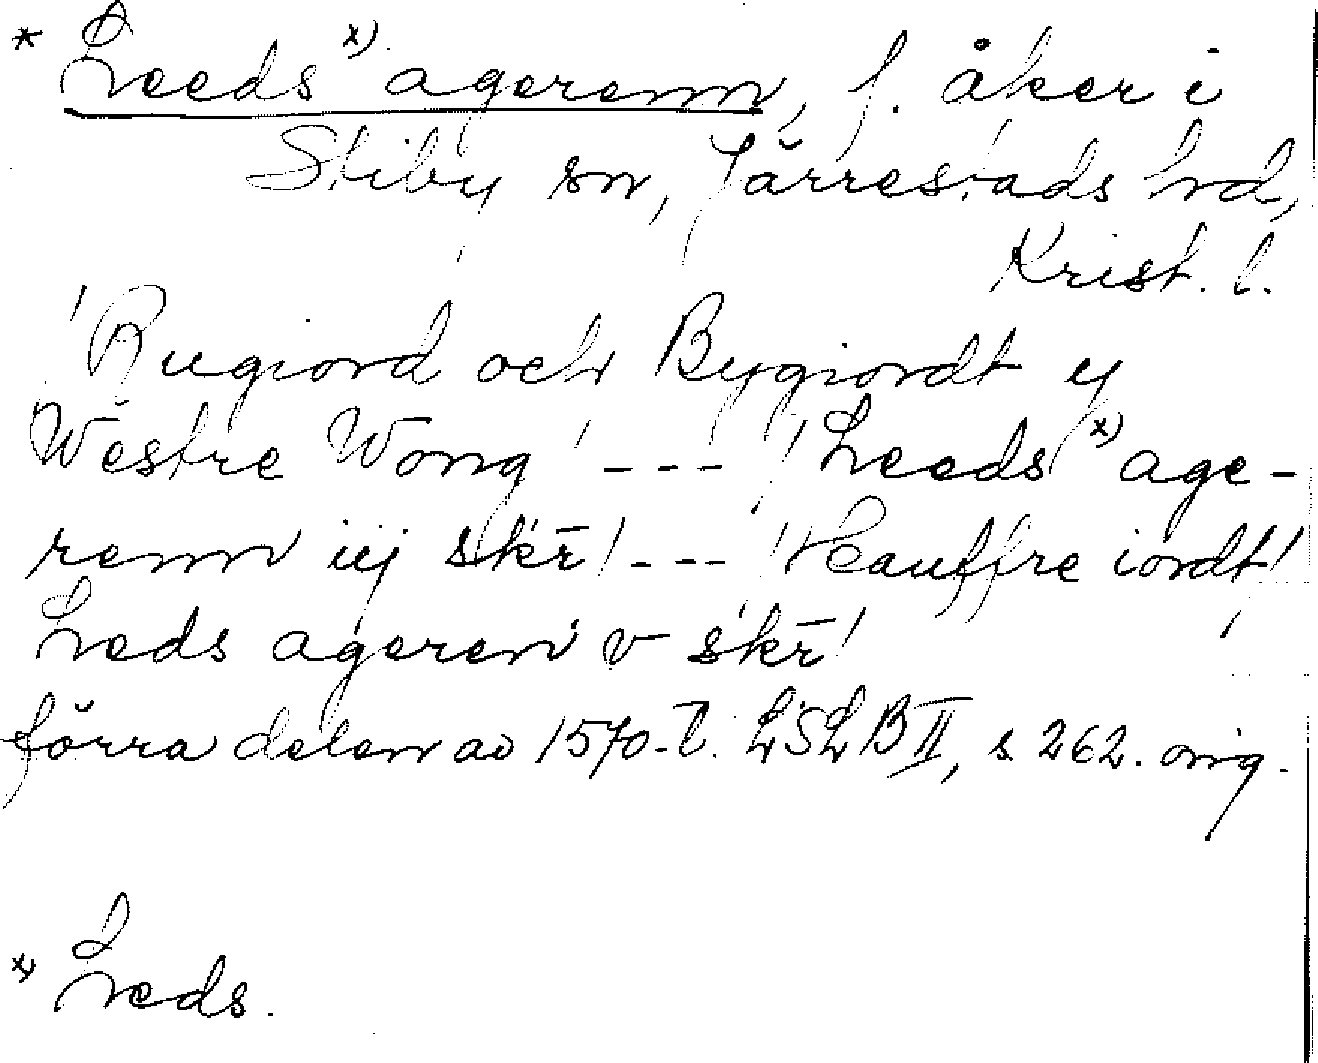 * Leeds x) agerenn, f. åker i
Stiby sn, Järrestads hd,
Krist. l.
'Rugiord och Bygiordt y
Westre Wong' --- 'Leeds x) age-
renn iij skr̄' --- 'Hauffre iordt'
Leds ageren v skr̄'
förra delen av 1570-t. LSLB II, s. 262. orig.
x) Leds.